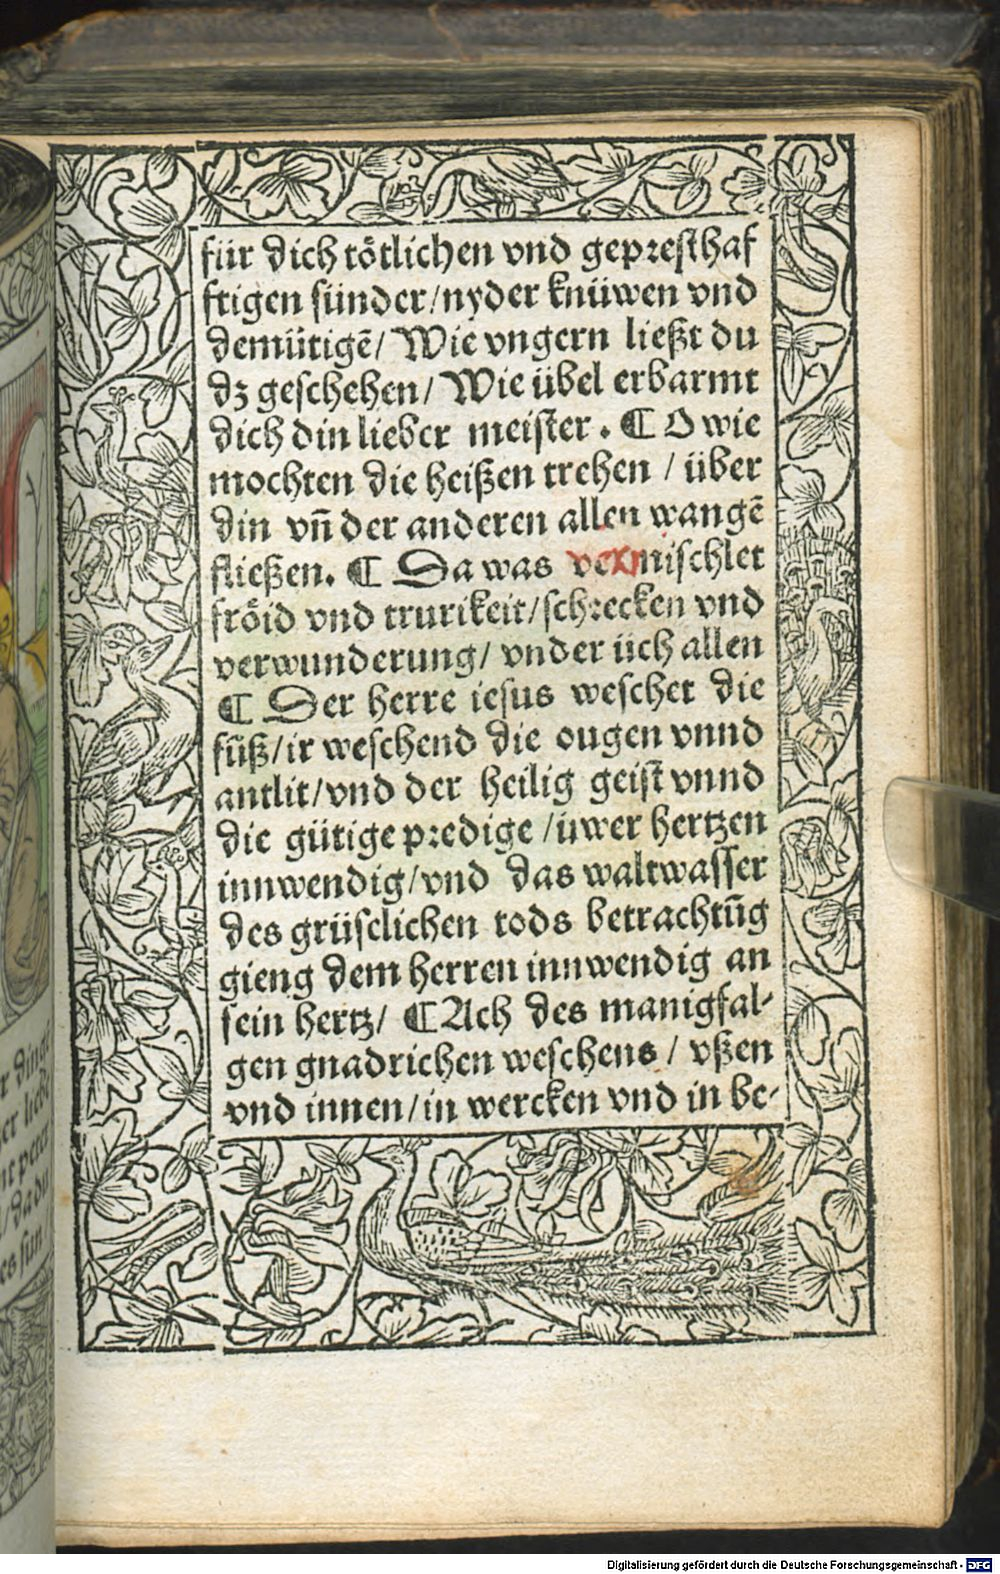 für dich tötlichen vnd gepresthaf
ftigen sünder/nyder knüwen vnd
demütigē/ Wie vngern ließt du
dz geschehen/ Wie übel erbarmt
dich din lieber meister. ¶ O wie
mochten die heißen trehen / über
din vñ der anderen allen wangē
fließen. ¶ Da was vermischlet
fröid vnd trurikeit/schrecken vnd
verwunderung/ vnder üch allen
¶ Der herre iesus weschet die
fůß/ir weschend die ougen vnnd
antlit/vnd der heilig geist vnnd
die gütige predige /uwer hertzen
innwendig/vnd das waltwasser
des grüsclichen tods betrachtūg
gieng dem herren innwendig an
sein hertz/ ¶ Ach des manigfal-
gen gnadrichen weschens / vßen
vnd innen/in wercken vnd in be-
r dinge
er liebe
Digitalisierung gefördert durch die Deutsche Forschungsgemeinschaft - DFG